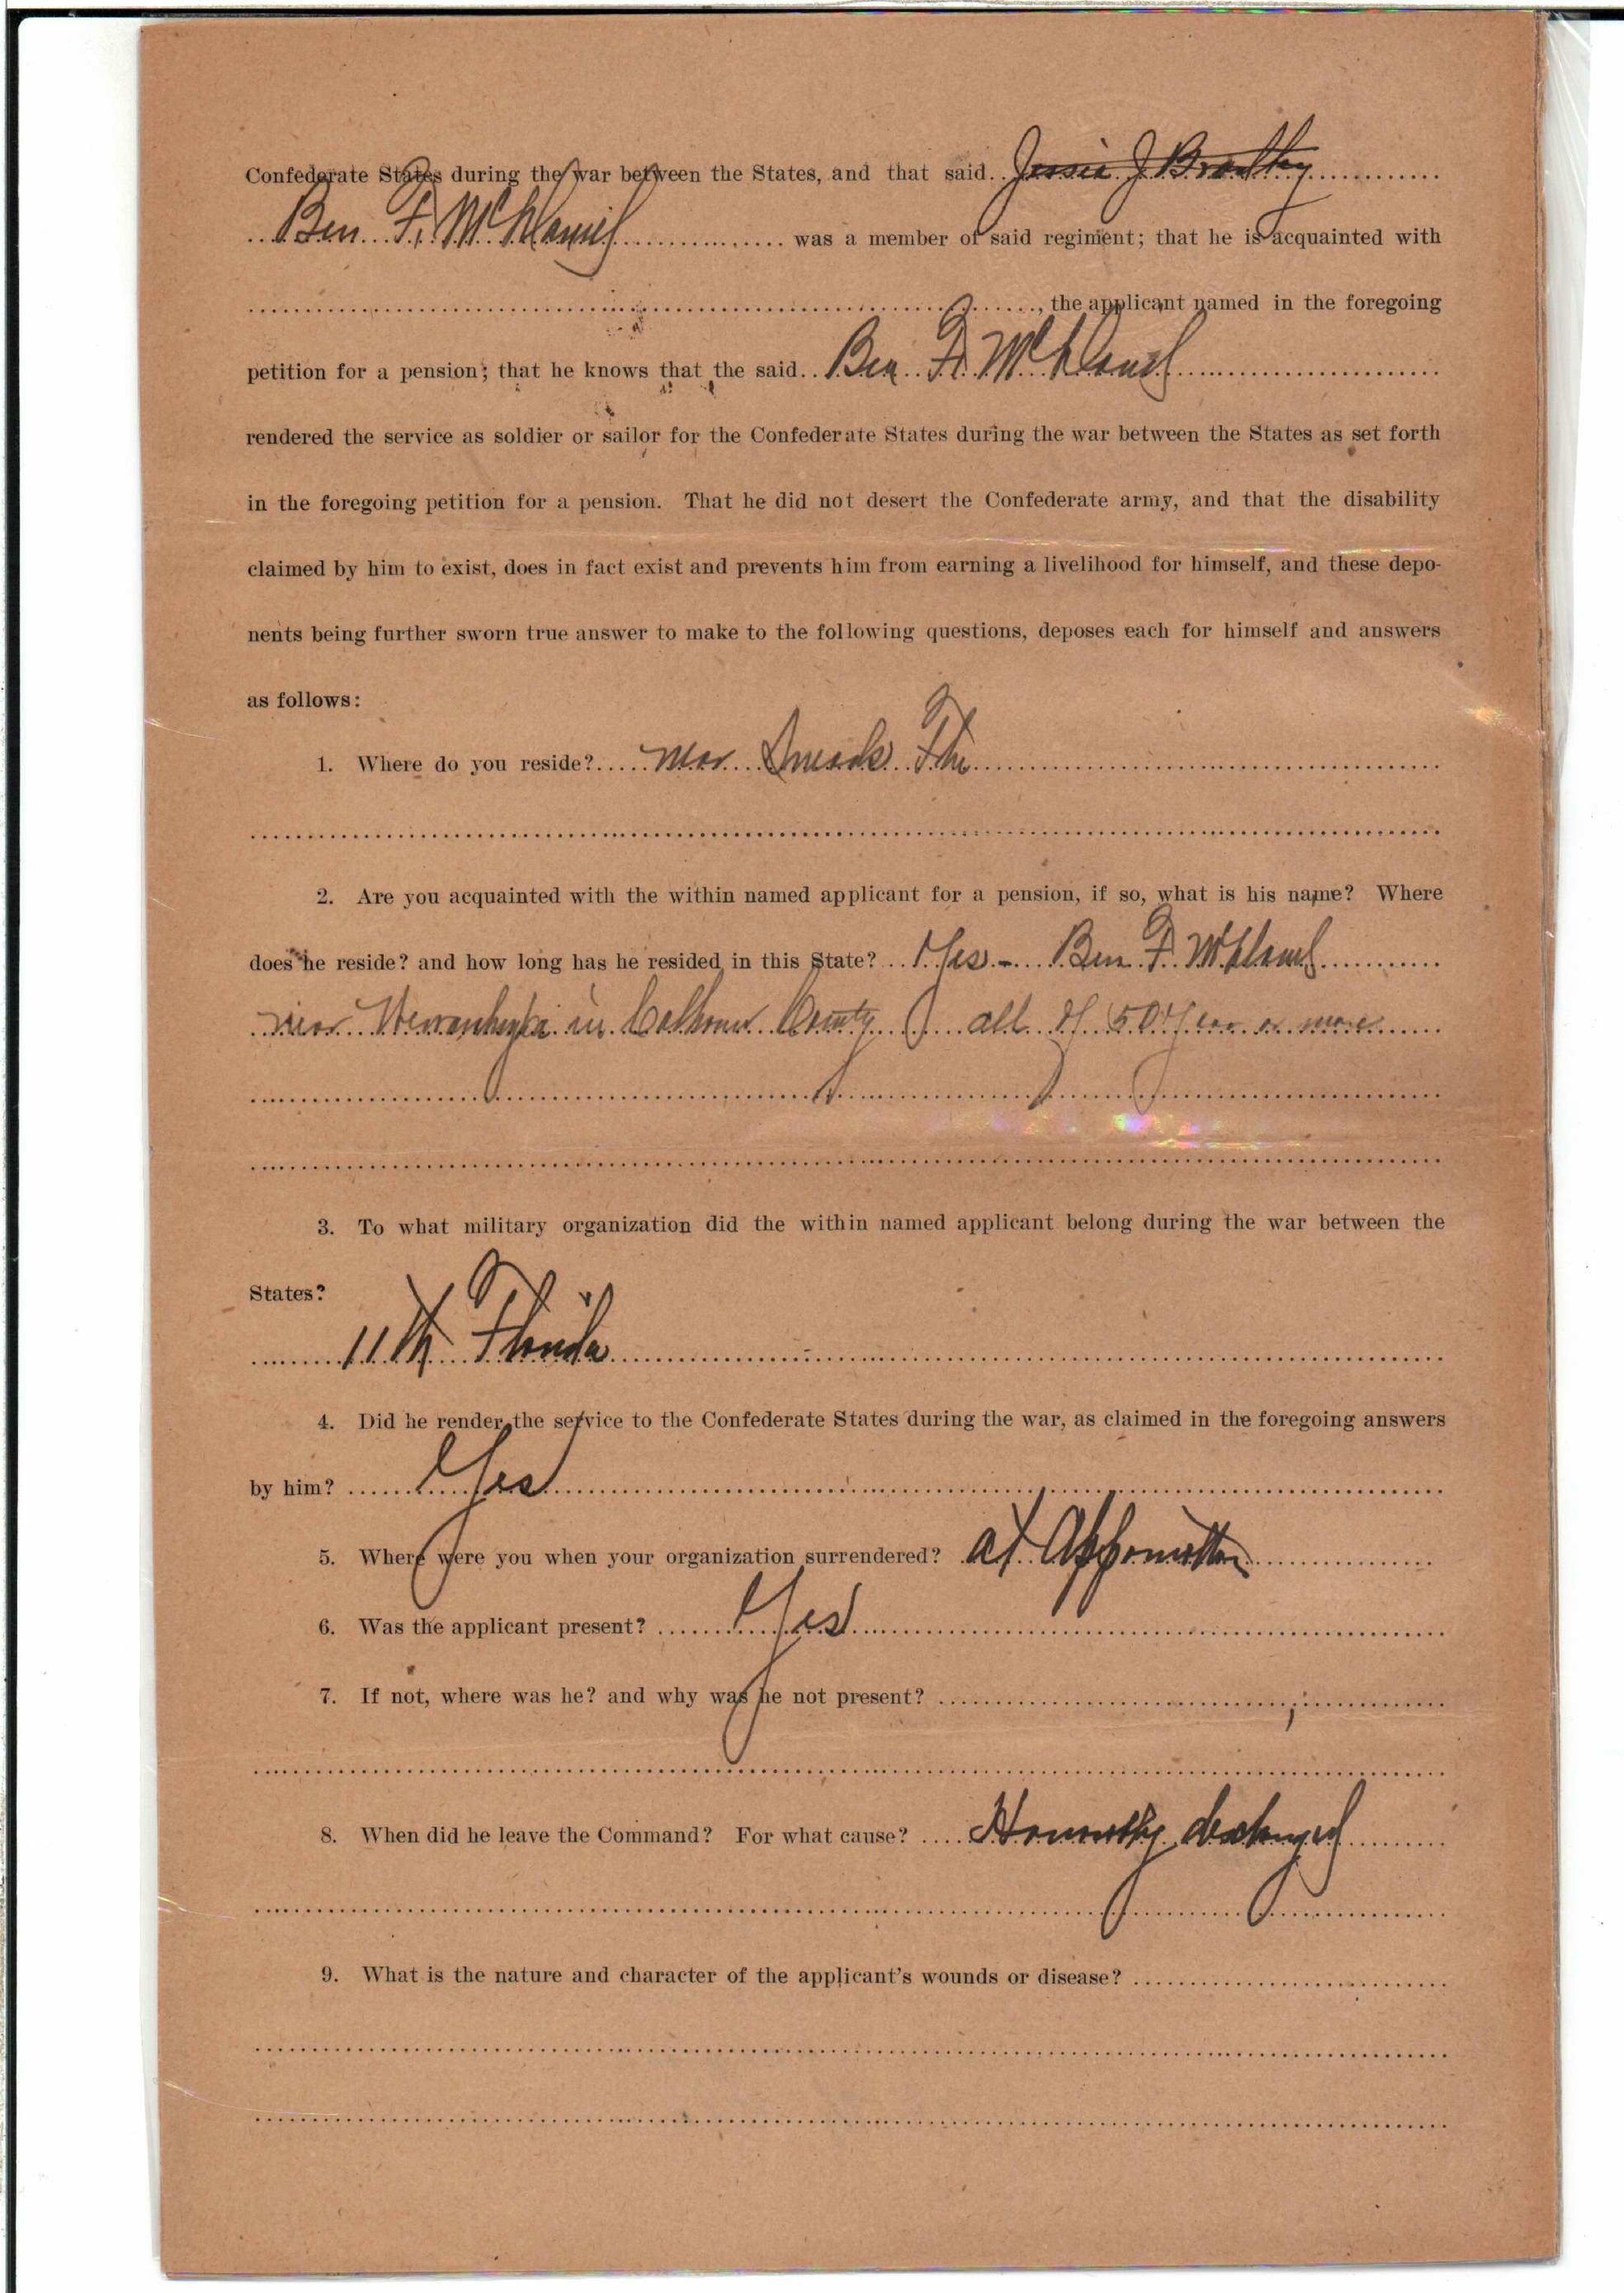 Confederate States during the war between the States, and that said Jessie J Bradley
Ben. F. McDaniel was a member of said regiment; that he is acquainted with
, the applicant named in the foregoing
petition for a pension; that he knows that the said Ben. F. McDaniel
rendered the service as soldier or sailor for the Confederate States during the war between the States as set forth
in the foregoing petition for a pension. That he did not desert the Confederate army, and that the disability
claimed by him to exist, does in fact exist and prevents him from earning a livelihood for himself, and these depo-
nents being further sworn true answer to make to the following questions, deposes each for himself and answers
as follows:
1. Where do you reside? near Fla
2. Are you acquainted with the within named applicant for a pension, if so, what is his name? Where
does he reside? and how long has he resided in this State? Yes - Ben. F. McDaniel
near Wewahitchka in Calhoun County all of 50 years or more
3. To what military organization did the within named applicant belong during the war between the
States?
11th Florida
4. Did he render the service to the Confederate States during the war, as claimed in the foregoing answers
by him? Yes
5. Where were you when your organization surrendered? at Appomattox
6. Was the applicant present? Yes
7. If not, where was he? and why was he not present?
8. When did he leave the Command? For what cause? Honorably discharged
9. What is the nature and character of the applicant's wounds or disease?